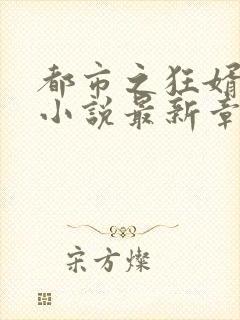 都市之狂婿
小說最新章
宋方燦